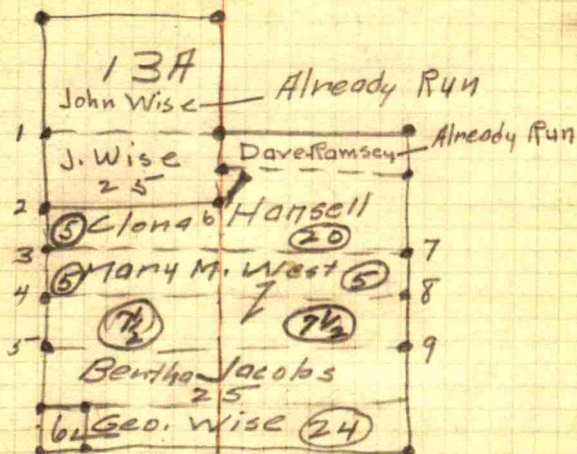 13A
John Wise Already Run
1
J. Wise Dave Ramsey Already Run
25
2
5 Clona b Hansell
20
3 7
5 Mary M. West 5
4 8
7 1/2 7 1/2
5 9
Bertha Jacobs
25
6 Geo. Wise 24